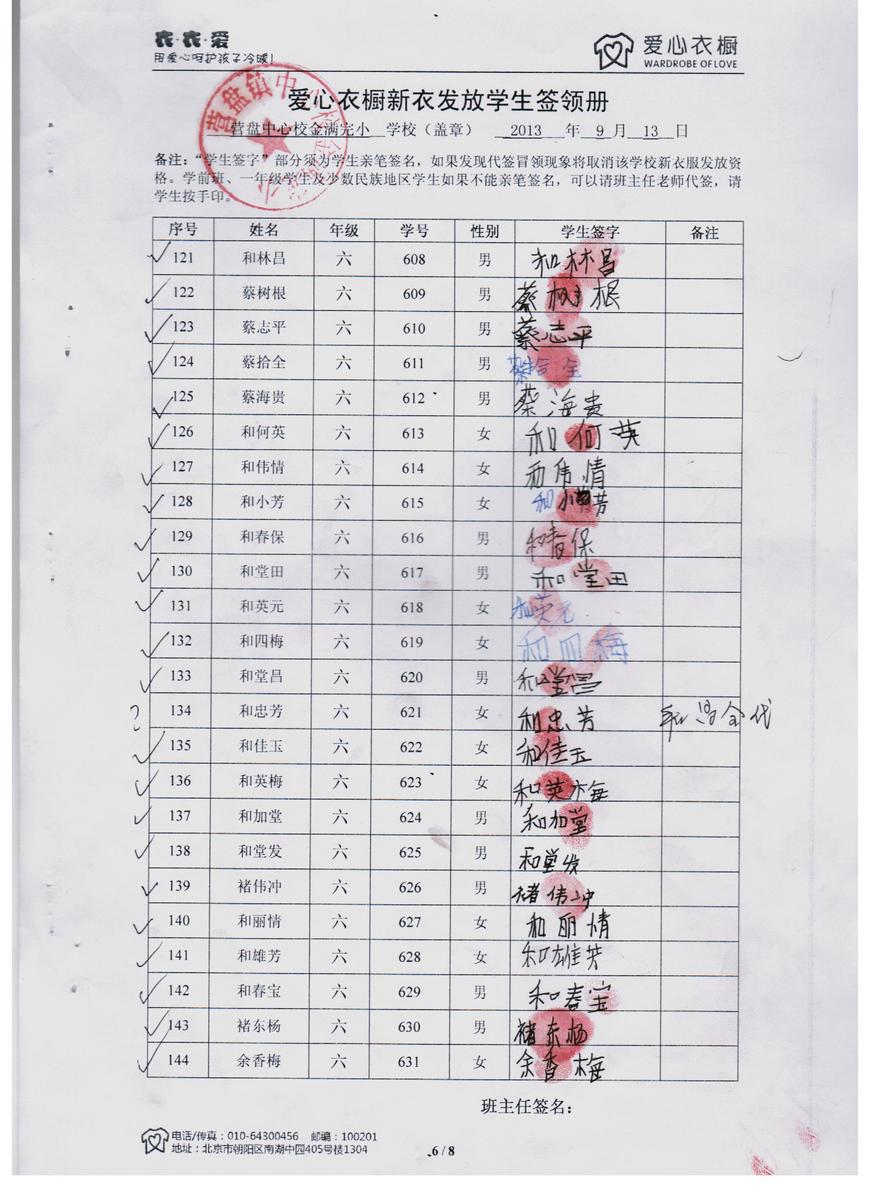 衣·衣·爱
用爱心呵护孩子冷暖!
爱心衣橱
WARDROBE OF LOVE
爱心衣橱新衣发放学生签领册
营盘中心校金满完小 学校（盖章） 2013 年 9 月 13 日
备注："学生签字"部分须为学生亲笔签名，如果发现代签冒领现象将取消该学校新衣服发放资
格。学前班、一年级学生及少数民族地区学生如果不能亲笔签名，可以请班主任老师代签，请
学生按手印。
序号 姓名 年级 学号 性别 学生签字 备注
121 和林昌 六 608 男 和林昌
122 蔡树根 六 609 男 蔡树根
123 蔡志平 六 610 男 蔡志平
124 蔡拾全 六 611 男 蔡拾全
125 蔡海贵 六 612 男 蔡海贵
126 和何英 六 613 女 和何英
127 和伟情 六 614 女 和伟情
128 和小芳 六 615 女 和小芳
129 和春保 六 616 男 和春保
130 和堂田 六 617 男 和堂田
131 和英元 六 618 女 和英元
132 和四梅 六 619 女 和四梅
133 和堂昌 六 620 男 和堂昌
134 和忠芳 六 621 女 和忠芳 代
135 和佳玉 六 622 女 和佳玉
136 和英梅 六 623 女 和英梅
137 和加堂 六 624 男 和加堂
138 和堂发 六 625 男 和堂发
139 褚伟冲 六 626 男 褚伟冲
140 和丽情 六 627 女 和丽情
141 和雄芳 六 628 女 和雄芳
142 和春宝 六 629 男 和春宝
143 褚东杨 六 630 男 褚东杨
144 余香梅 六 631 女 余香梅
班主任签名：
电话/传真：010-64300456 邮编：100201
地址：北京市朝阳区南湖中园405号楼1304
6 / 8